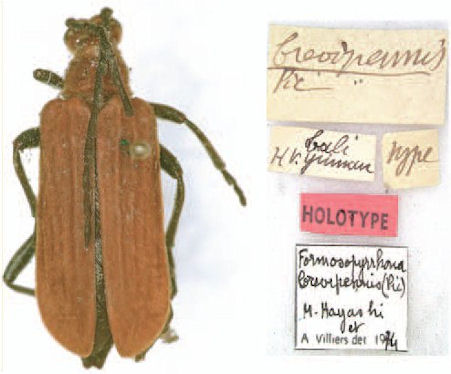 brevipennis
Pic
type
HOLOTYPE
Formosopyrrhona
brevipennis (Pic)
M. Hayashi
et
A Villiers det 1974